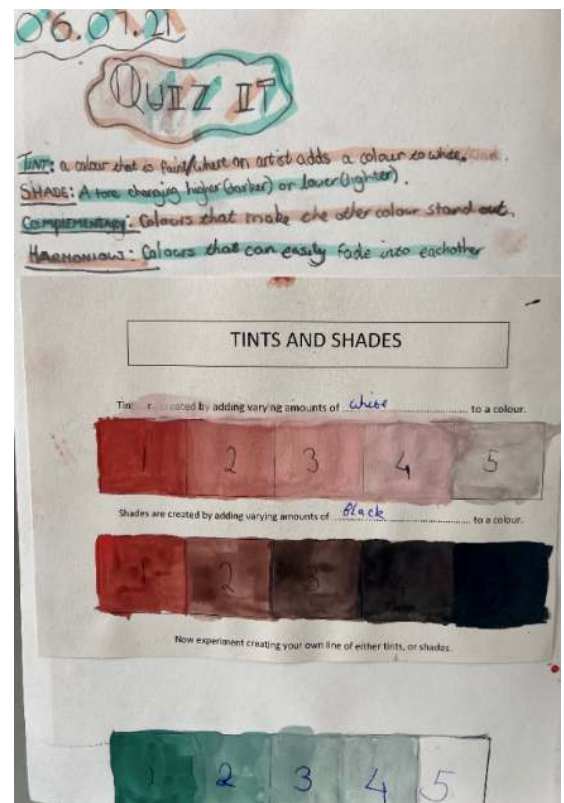 06.09.21
QUIZ IT
TINT: a colour that is faint/where an artist adds a colour to white.
SHADE: A tone changing higher (darker) or lower (lighter).
COMPLEMENTARY: Colours that make the other colour stand out.
HARMONIOUS: Colours that can easily fade into eachother
TINTS AND SHADES
created by adding varying amounts of white to a colour.
1 2 3 4 5
Shades are created by adding varying amounts of Black to a colour.
1 2 3
Now experiment creating your own line of either tints, or shades.
1 2 3 4 5